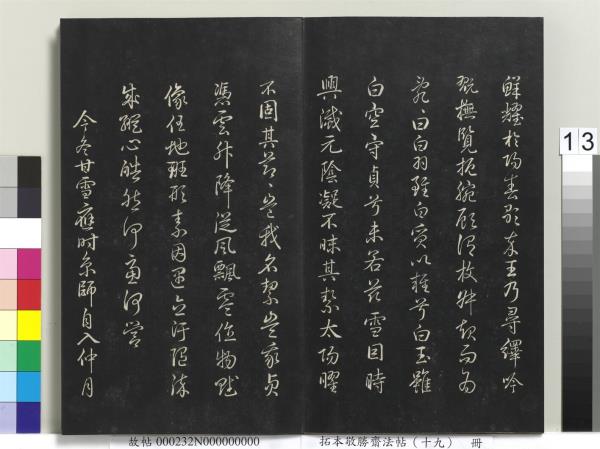 鮮耀於陽春歌卒王乃尋繹吟
翫撫覽扼腕顧謂枚叔起而為
亂曰白羽雖白質以輕兮白玉雖
白空守貞兮未若茲雪因時
興滅元陰凝不昧其絜太陽曜
不固其節、豈我名絜豈我貞
憑雲升降從風飄零值物賦
像任地班形素因遇立汙隨染
成縱心皓然何慮何營
今冬甘雪應時京師自入仲月
13
故帖 000232N000000000
拓本敬勝齋法帖（十九） 冊